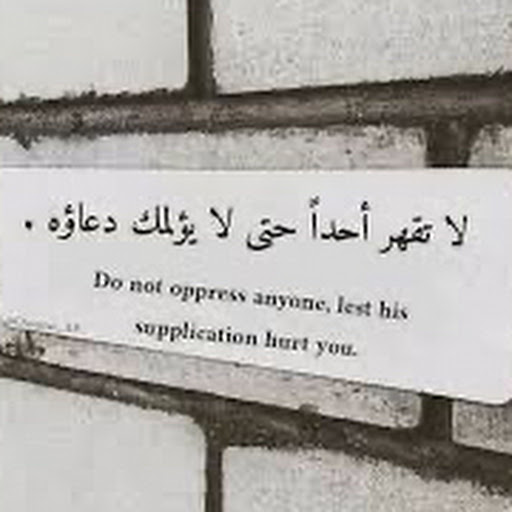 لا تقهر أحداً حتى لا يؤلمك دعاؤه .
Do not oppress anyone, lest his
supplication hurt you.